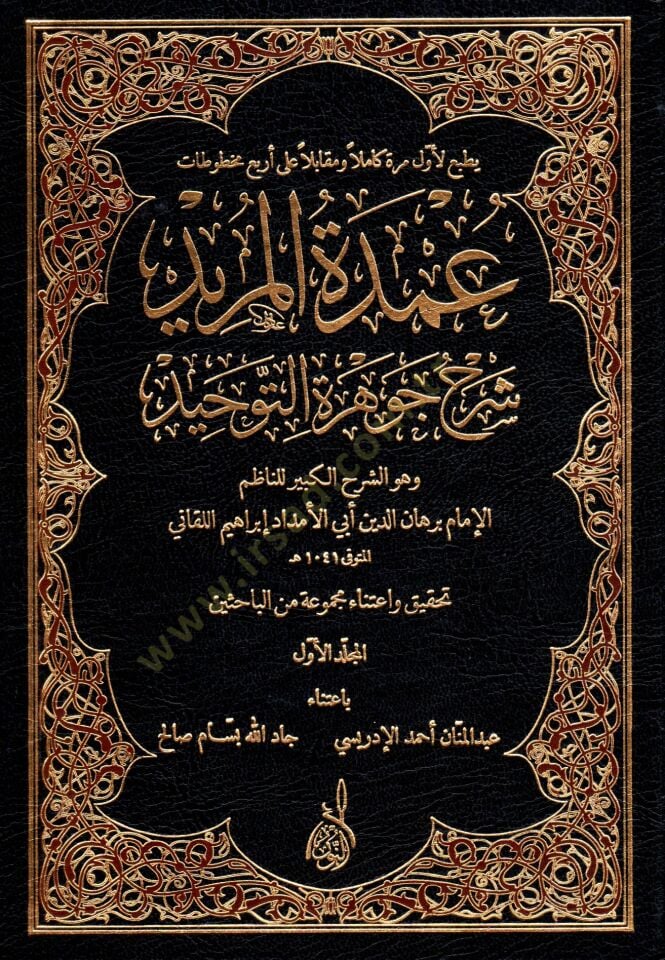 يطبع لأول مرة كاملاً ومقابلاً على أربع مخطوطات
عُمْدَةُ المُرِيْدِ
شَرْحُ جَوْهَرَةِ التَّوْحِيْدِ
وهو الشرح الكبير للناظم
الإمام برهان الدين أبي الأمداد إبراهيم اللقاني
المتوفى ١٠٤١ هـ
تحقيق واعتناء مجموعة من الباحثين
المجلّد الأوّل
باعتناء
عبدالمنّان أحمد الإدريسي جاد الله بسّام صالح
النور
www.irsad.com.tr